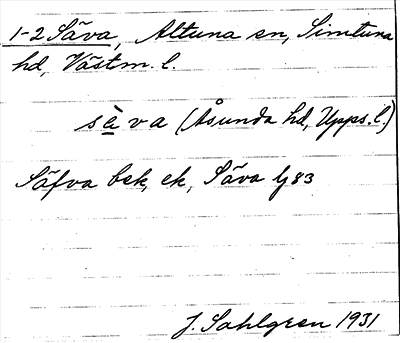 1-2 Säva, Altuna sn, Simtuna
hd, Västm. l.
sèva (Åsunda hd, Upps. l.)
Säfva bek, ek, Säva lj 83
J. Sahlgren 1931